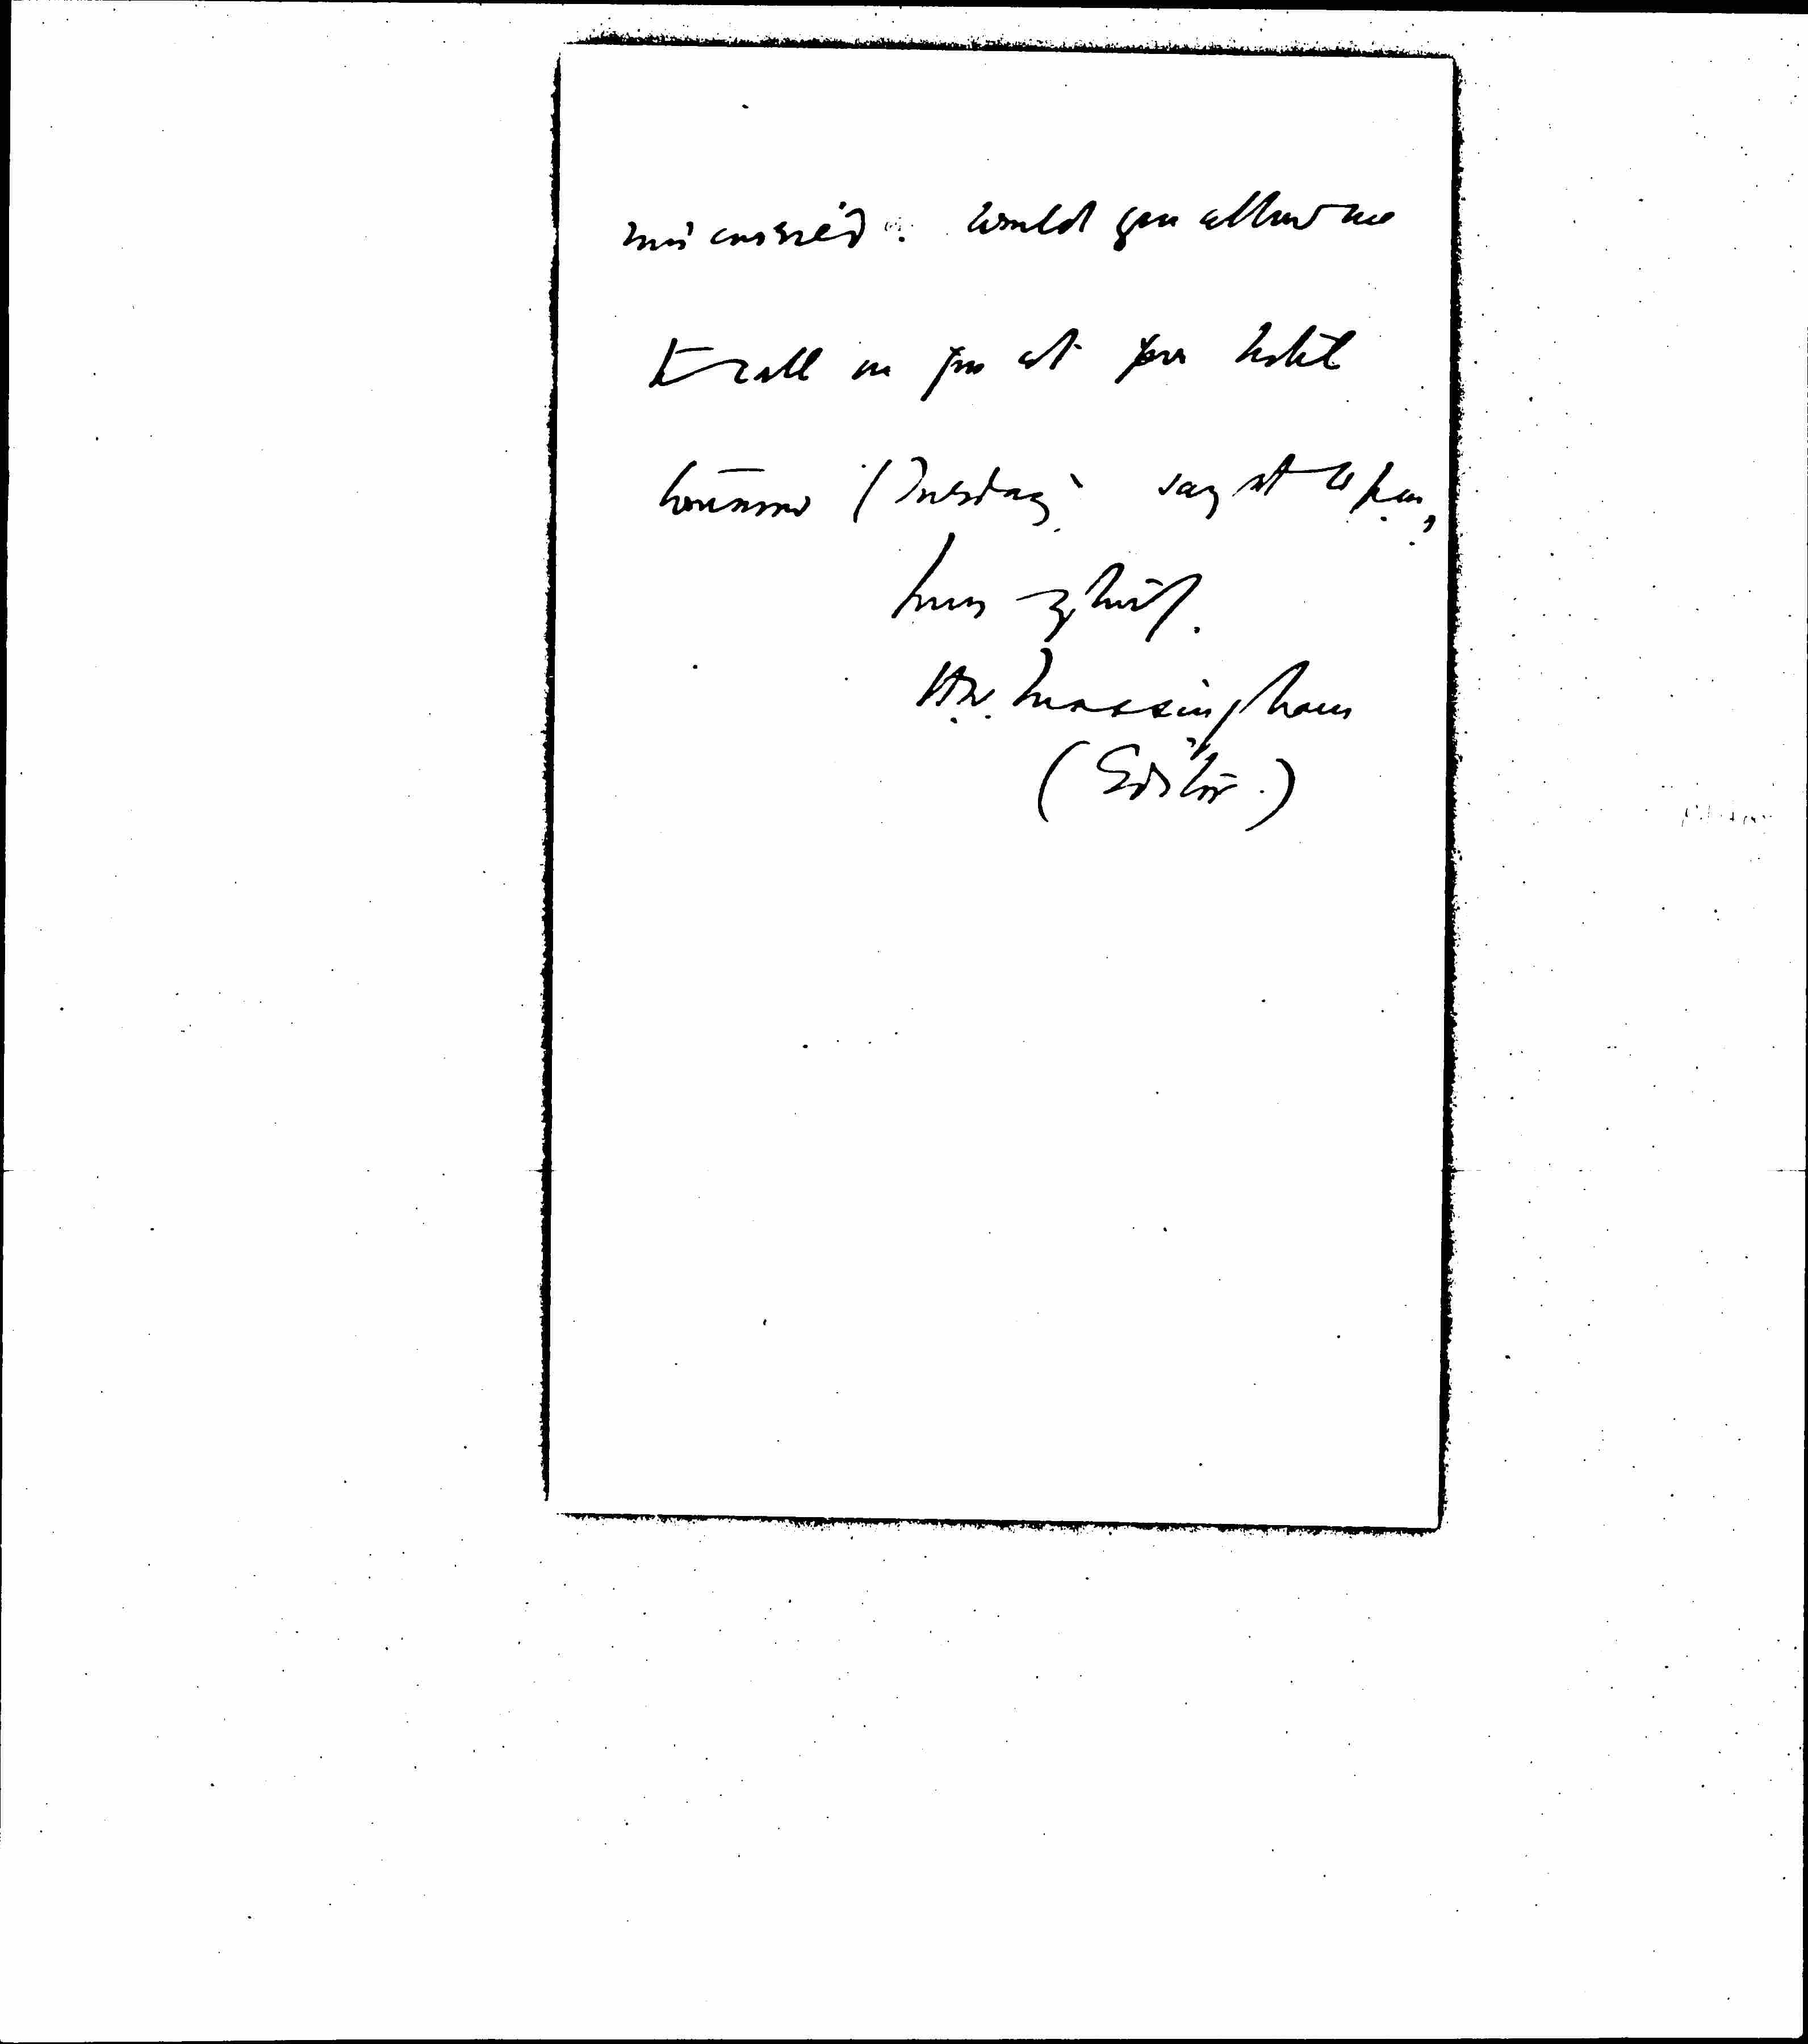 miscarried. Would you allow me
to call on you at your hotel
tomorrow (Tuesday) say at 6 p.m.,
Yours
H.W. Massingham
(Editor.)